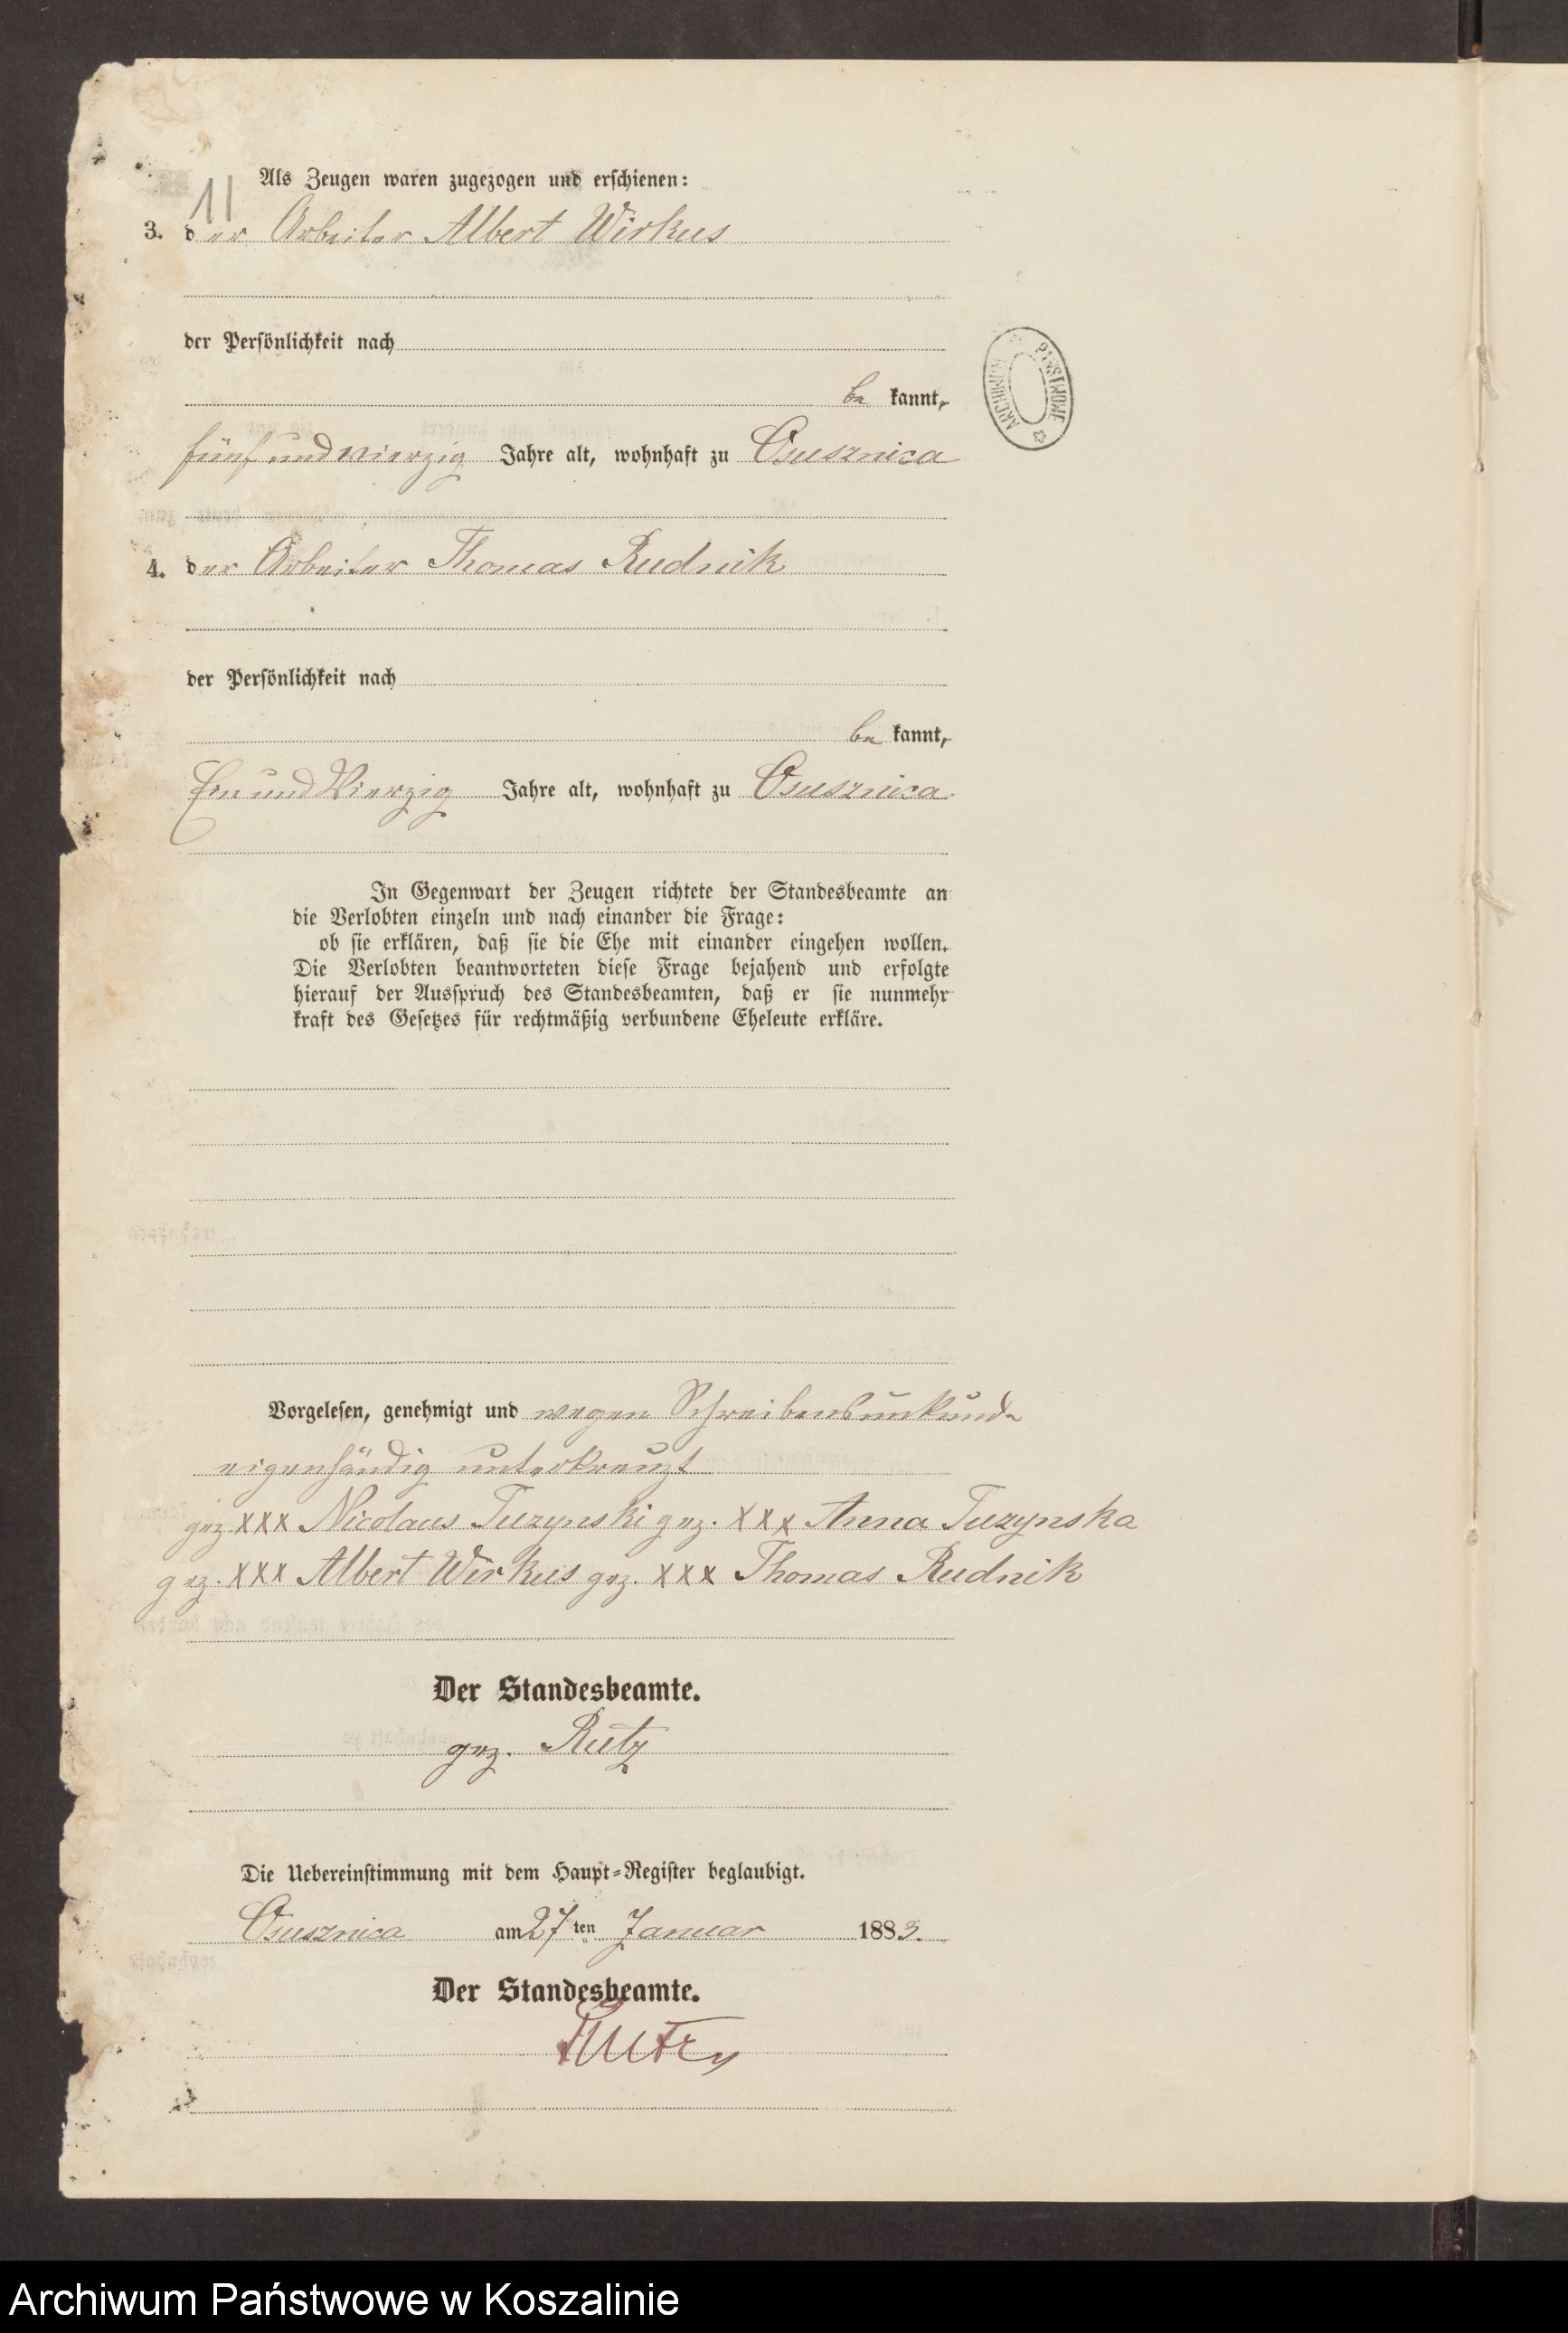 Als Zeugen waren zugezogen und erschienen:
11
3. der Arbeiter Albert Wirkus
der Persönlichkeit nach
be kannt,
fünf und vierzig Jahre alt, wohnhaft zu Osusznica
4. der Arbeiter Thomas Rudnik
der Persönlichkeit nach
be kannt,
Ein und Vierzig Jahre alt, wohnhaft zu Osusznica.
In Gegenwart der Zeugen richtete der Standesbeamte an
die Verlobten einzeln und nach einander die Frage:
ob sie erklären, daß sie die Ehe mit einander eingehen wollen.
Die Verlobten beantworteten diese Frage bejahend und erfolgte
hierauf der Ausspruch des Standesbeamten, daß er sie nunmehr
kraft des Gesetzes für rechtmäßig verbundene Eheleute erkläre.
Vorgelesen, genehmigt und wegen Schreibensunkunde
eigenhändig unterkreuzt
gez xxx Nicolaus Tuzynski gez. xxx Anna Tuzynska
gez. xxx Albert Wirkus gez. xxx Thomas Rudnik
Der Standesbeamte.
gez. Rutz
Die Uebereinstimmung mit dem Haupt-Register beglaubigt.
Osusznica am 27 ten Januar 1883.
Der Standesbeamte.
Rutz
ARCHIWUM PAŃSTWOWE
Archiwum Państwowe w Koszalinie